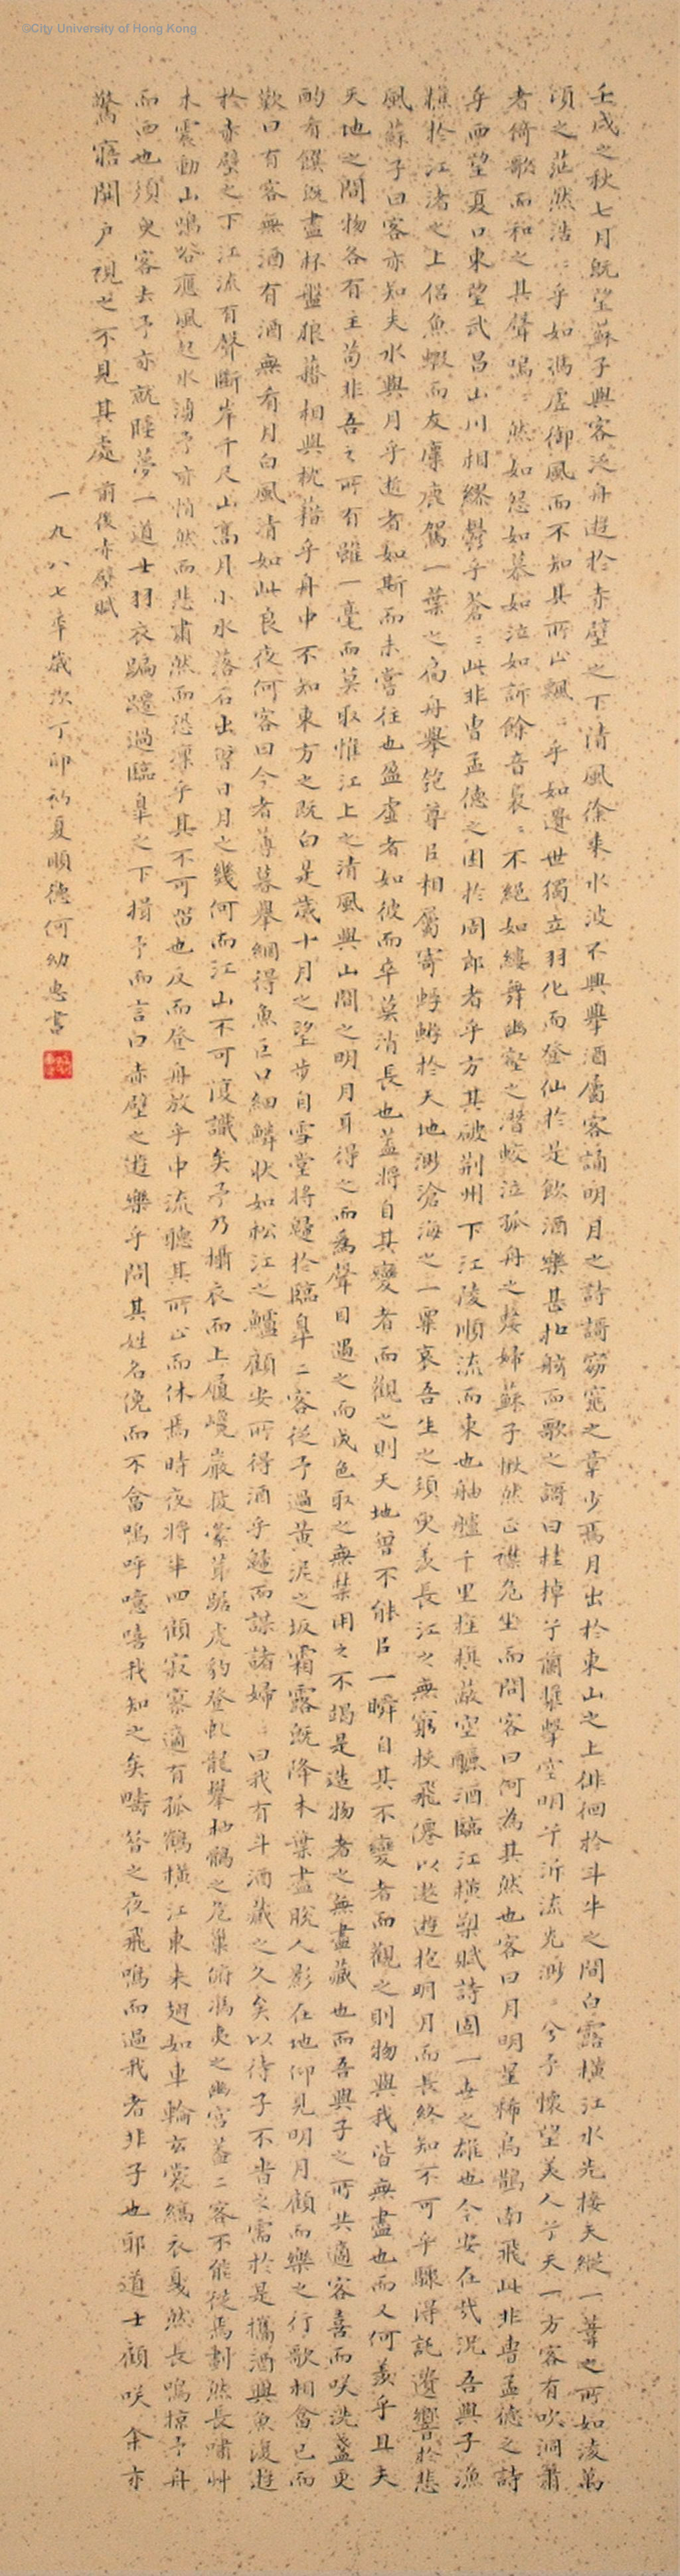 ©City University of Hong Kong
壬戌之秋七月既望蘇子與客泛舟遊於赤壁之下清風徐來水波不興舉酒屬客誦明月之詩謌窈窕之章少焉月出於東山之上徘徊於斗牛之間白露橫江水光接天縱一葦之所如淩萬
頃之茫然浩〻乎如馮虛御風而不知其所止飄〻乎如遺世獨立羽化而登仙於是飲酒樂甚扣舷而歌之謌曰桂棹兮蘭槳擊空明兮泝流光渺〻兮予懷望美人兮天一方客有吹洞簫
者倚歌而和之其聲嗚〻然如怨如慕如泣如訴餘音裊〻不絕如縷舞幽壑之潛蛟泣孤舟之嫠婦蘇子愀然正襟危坐而問客曰何為其然也客曰月明星稀烏鵲南飛此非曹孟德之詩
乎西望夏口東望武昌山川相繆鬱乎蒼〻此非曹孟德之困於周郎者乎方其破荊州下江陵順流而東也舳艫千里旌旗蔽空釃酒臨江橫槊賦詩固一世之雄也今安在哉況吾與子漁
樵於江渚之上侶魚蝦而友麋鹿駕一葉之扁舟舉匏尊㠯相屬寄蜉蝣於天地渺滄海之一粟哀吾生之須臾羨長江之無窮挾飛僊以遨遊抱明月而長終知不可乎驟得託遺響於悲
風蘇子曰客亦知夫水與月乎逝者如斯而未嘗往也盈虛者如彼而卒莫消長也蓋將自其變者而觀之則天地曾不能㠯一瞬自其不變者而觀之則物與我皆無盡也而又何羨乎且夫
天地之間物各有主苟非吾之所有雖一毫而莫取惟江上之清風與山間之明月耳得之而為聲目遇之而成色取之無禁用之不竭是造物者之無盡藏也而吾與子之所共適客喜而咲洗盞更
酌肴饌既盡杯盤狼藉相與枕藉乎舟中不知東方之既白是歲十月之望步自雪堂將歸於臨皋二客從予過黃泥之坂霜露既降木葉盡脫人影在地仰見明月顧而樂之行歌相答已而
歎曰有客無酒有酒無肴月白風清如此良夜何客曰今者薄暮舉網得魚巨口細鱗狀如松江之鱸顧安所得酒乎歸而謀諸婦〻曰我有斗酒藏之久矣以待子不時之需於是攜酒與魚復遊
於赤壁之下江流有聲斷岸千尺山高月小水落石出曾日月之幾何而江山不可復識矣予乃攝衣而上履巉巖披蒙茸踞虎豹登虬龍攀栖鶻之危巢俯馮夷之幽宮蓋二客不能從焉劃然長嘯艸
木震動山鳴谷應風起水湧予亦悄然而悲肅然而恐凜乎其不可留也反而登舟放乎中流聽其所止而休焉時夜將半四顧寂寥適有孤鶴橫江東來翅如車輪玄裳縞衣戛然長鳴掠予舟
而西也須臾客去予亦就睡夢一道士羽衣蹁躚過臨皋之下揖予而言曰赤壁之遊樂乎問其姓名俛而不答嗚呼噫嘻我知之矣疇昔之夜飛鳴而過我者非子也耶道士顧咲余亦
驚寤開戶視之不見其處 前後赤壁賦
一九八七年歲次丁卯初夏順德何幼惠書